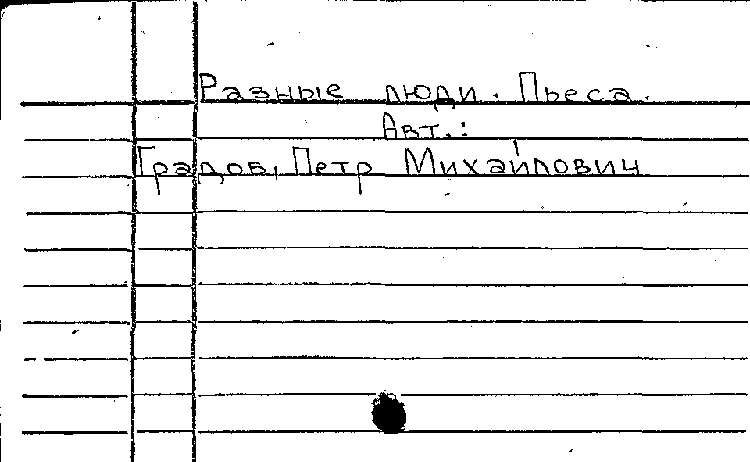 Разные люди. Пьеса.
Авт.:
Градов, Петр Михайлович